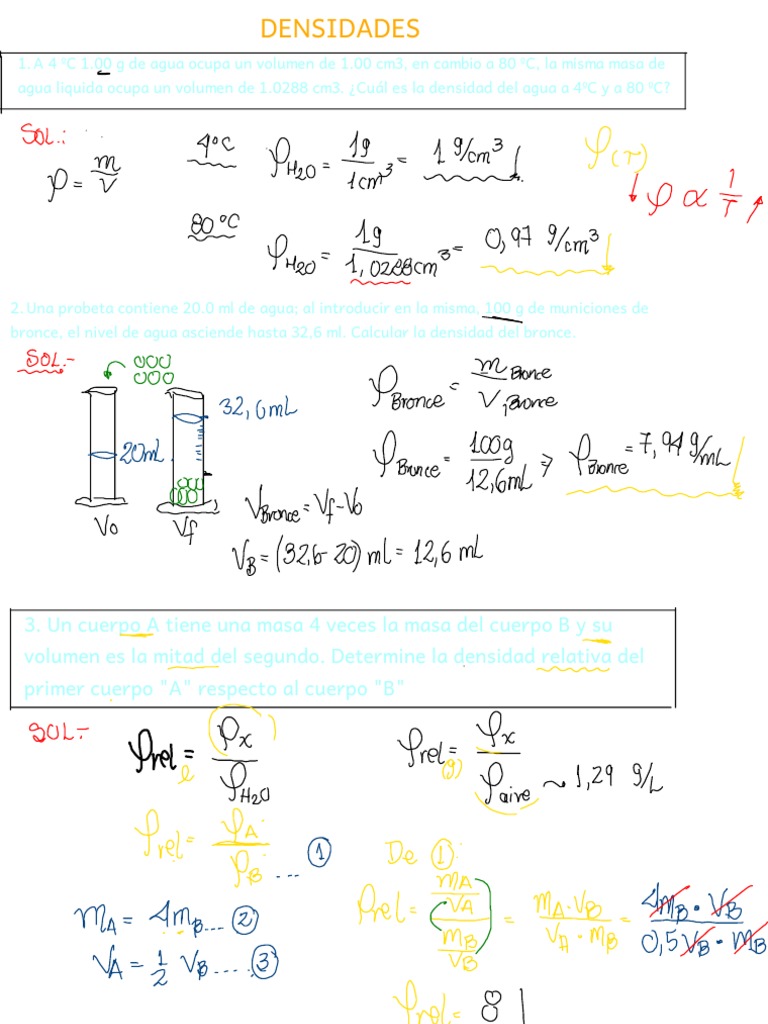 DENSIDADES
1. A 4 ºC 1.00 g de agua ocupa un volumen de 1.00 cm3, en cambio a 80 ºC, la misma masa de
agua liquida ocupa un volumen de 1.0288 cm3. ¿Cuál es la densidad del agua a 4ºC y a 80 ºC?
SOL.:
ρ = m/V
4°C ρH2O = 1g/1cm³ = 1 g/cm³
ρ(T)
ρ ∝ 1/T
80°C ρH2O = 1g/1,0288cm³ = 0,97 g/cm³
2. Una probeta contiene 20.0 ml de agua; al introducir en la misma, 100 g de municiones de
bronce, el nivel de agua asciende hasta 32,6 ml. Calcular la densidad del bronce.
SOL.-
32,6mL
20mL
Vo
Vf
ρBronce = mBronce/VBronce
ρBronce = 100g/12,6mL => ρBronce = 7,94 g/mL
VBronce = Vf-Vo
VB = (32,6-20) ml = 12,6 ml
3. Un cuerpo A tiene una masa 4 veces la masa del cuerpo B y su
volumen es la mitad del segundo. Determine la densidad relativa del
primer cuerpo "A" respecto al cuerpo "B"
SOL:-
ρrel = ρx/ρH2O
ρrel(g) = ρx/ρaire ~ 1,29 g/L
ρrel = ρA/ρB ... ①
mA = 4mB... ②
VA = 1/2 VB.... ③
De ①:
ρrel = (mA/VA)/(mB/VB) = mA·VB/VA·mB = 4mB·VB/0,5VB·mB
ρrel = 8